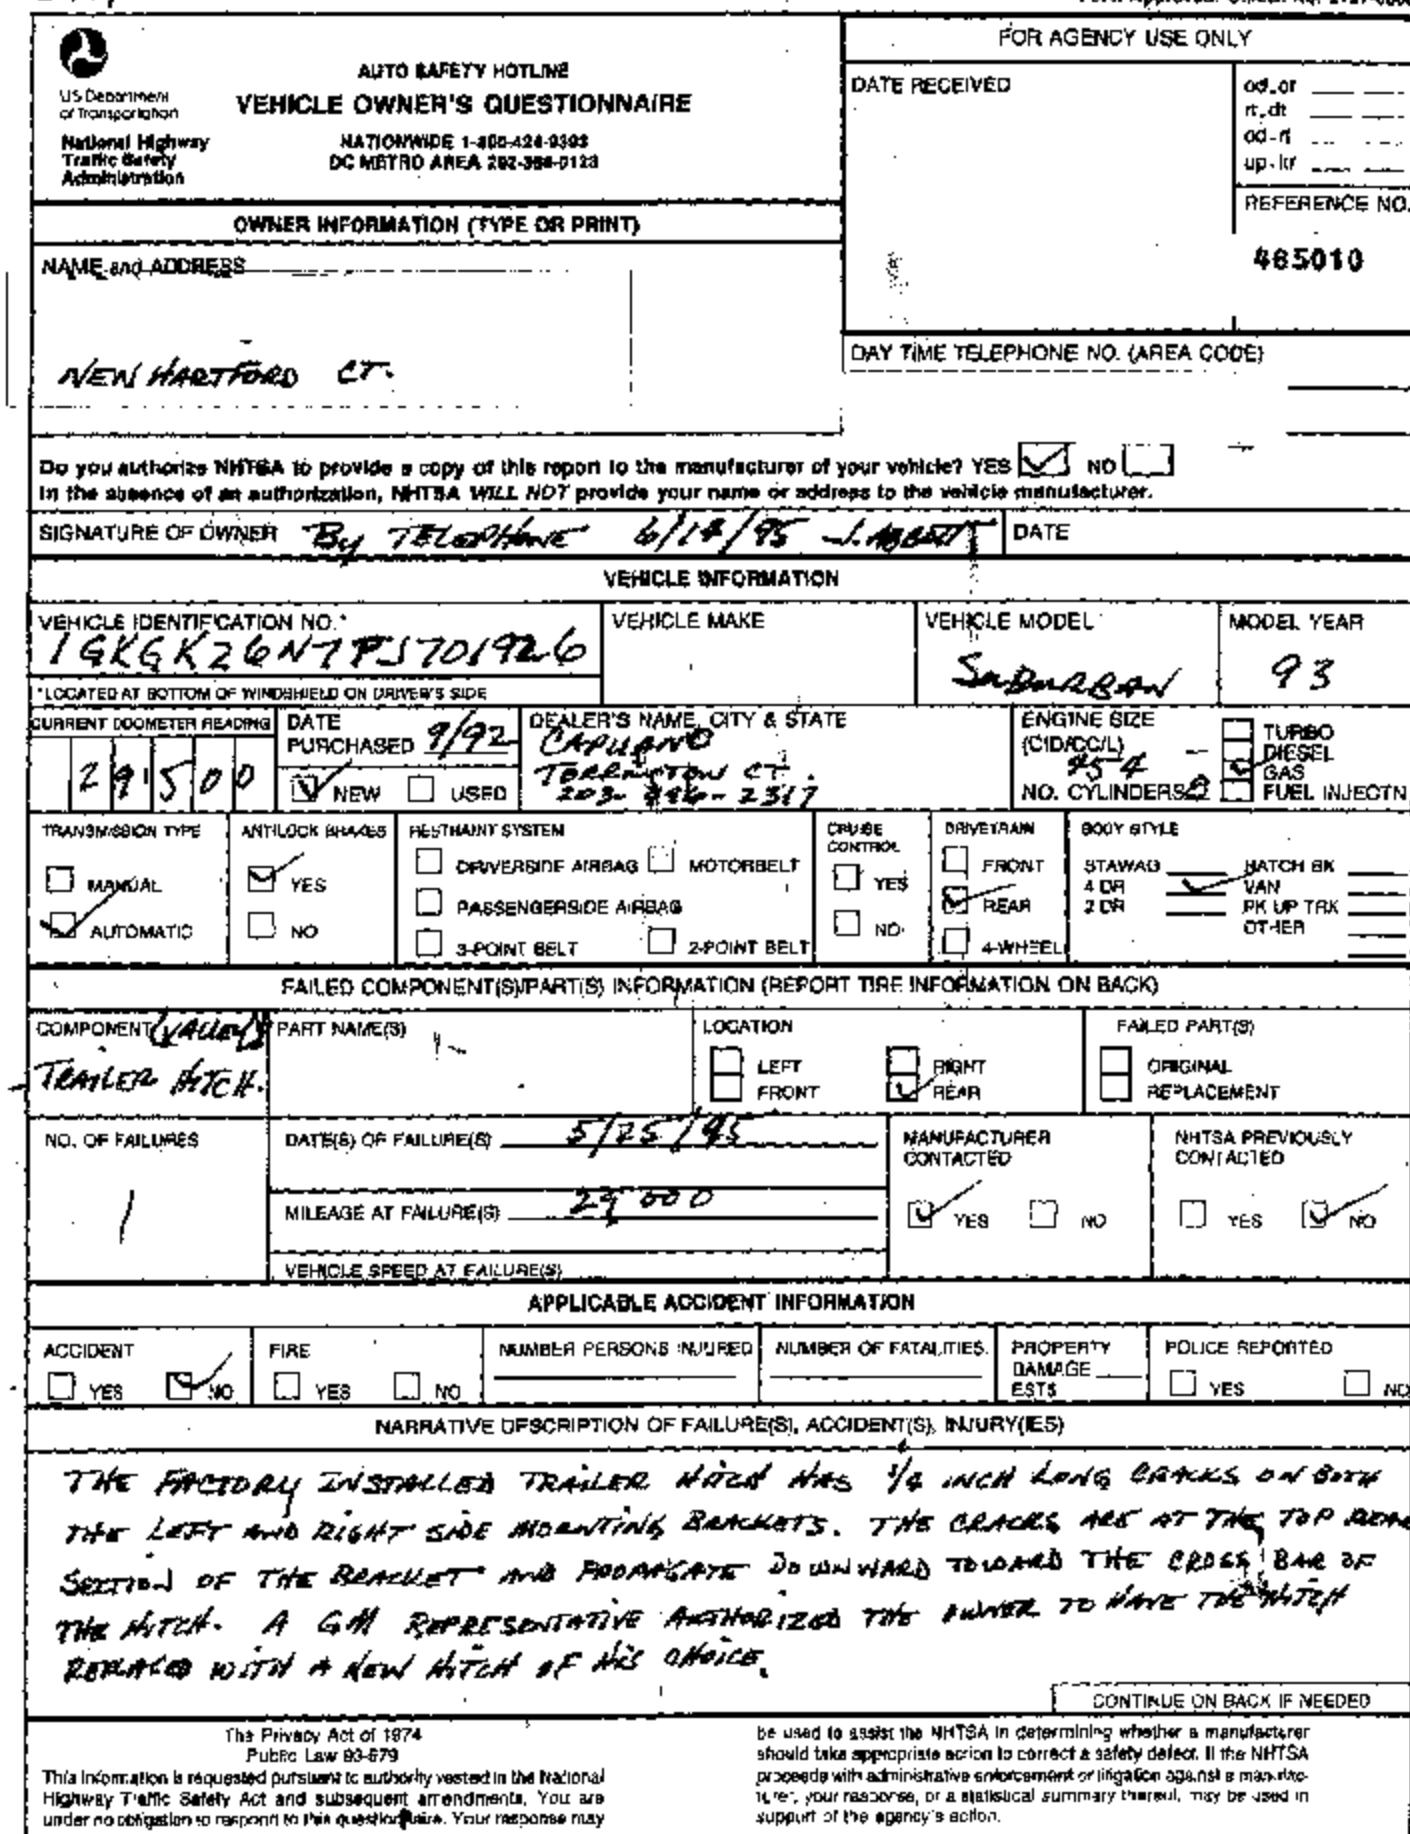 FOR AGENCY USE ONLY
US Department
of Transportation
National Highway
Traffic Safety
Administration
AUTO SAFETY HOTLINE
VEHICLE OWNER'S QUESTIONNAIRE
NATIONWIDE 1-800-424-9393
DC METRO AREA 202-366-0123
DATE RECEIVED
od-or
rt-dt
od-rt
up-ltr
REFERENCE NO.
465010
OWNER INFORMATION (TYPE OR PRINT)
NAME and ADDRESS
NEW HARTFORD CT.
DAY TIME TELEPHONE NO. (AREA CODE)
Do you authorize NHTSA to provide a copy of this report to the manufacturer of your vehicle? YES NO
In the absence of an authorization, NHTSA WILL NOT provide your name or address to the vehicle manufacturer.
SIGNATURE OF OWNER By TELEPHONE 6/14/95 J. ABBOTT DATE
VEHICLE INFORMATION
VEHICLE IDENTIFICATION NO.* VEHICLE MAKE VEHICLE MODEL MODEL YEAR
1GKGK26N7PJ701926 SUBURBAN 93
*LOCATED AT BOTTOM OF WINDSHIELD ON DRIVER'S SIDE
CURRENT ODOMETER READING
29500
DATE
PURCHASED 9/92
NEW USED
DEALER'S NAME, CITY & STATE
CAPUANO
TORRINGTON CT.
ENGINE SIZE
(CID/CC/L)
454
NO. CYLINDERS 8
TURBO
DIESEL
GAS
FUEL INJECTN
TRANSMISSION TYPE
MANUAL
AUTOMATIC
ANTILOCK BRAKES
YES
NO
RESTRAINT SYSTEM
DRIVERSIDE AIRBAG MOTORBELT
PASSENGERSIDE AIRBAG
3-POINT BELT 2-POINT BELT
CRUISE
CONTROL
YES
NO
DRIVETRAIN
FRONT
REAR
4-WHEEL
BODY STYLE
STAWAG HATCH BK
4 DR VAN
2 DR PK UP TRK
OTHER
FAILED COMPONENT(S)/PART(S) INFORMATION (REPORT TIRE INFORMATION ON BACK)
COMPONENT (VALLEY)
TRAILER HITCH.
PART NAME(S)
LOCATION
LEFT RIGHT
FRONT REAR
FAILED PART(S)
ORIGINAL
REPLACEMENT
NO. OF FAILURES
1
DATE(S) OF FAILURE(S) 5/25/95
MILEAGE AT FAILURE(S) 29000
VEHICLE SPEED AT FAILURE(S)
MANUFACTURER
CONTACTED
YES NO
NHTSA PREVIOUSLY
CONTACTED
YES NO
APPLICABLE ACCIDENT INFORMATION
ACCIDENT
YES NO
FIRE
YES NO
NUMBER PERSONS INJURED
NUMBER OF FATALITIES
PROPERTY
DAMAGE
ESTS
POLICE REPORTED
YES NO
NARRATIVE DESCRIPTION OF FAILURE(S), ACCIDENT(S), INJURY(IES)
THE FACTORY INSTALLED TRAILER HITCH HAS 1/4 INCH LONG CRACKS ON BOTH
THE LEFT AND RIGHT SIDE MOUNTING BRACKETS. THE CRACKS ARE AT THE TOP REAR
SECTION OF THE BRACKET AND PROPAGATE DOWNWARD TOWARD THE CROSS BAR OF
THE HITCH. A GM REPRESENTATIVE AUTHORIZED THE OWNER TO HAVE THE HITCH
REPLACED WITH A NEW HITCH OF HIS CHOICE.
CONTINUE ON BACK IF NEEDED
The Privacy Act of 1974
Public Law 93-579
This information is requested pursuant to authority vested in the National
Highway Traffic Safety Act and subsequent amendments. You are
under no obligation to respond to this questionnaire. Your response may
be used to assist the NHTSA in determining whether a manufacturer
should take appropriate action to correct a safety defect. If the NHTSA
proceeds with administrative enforcement or litigation against a manufac-
turer, your response, or a statistical summary thereof, may be used in
support of the agency's action.